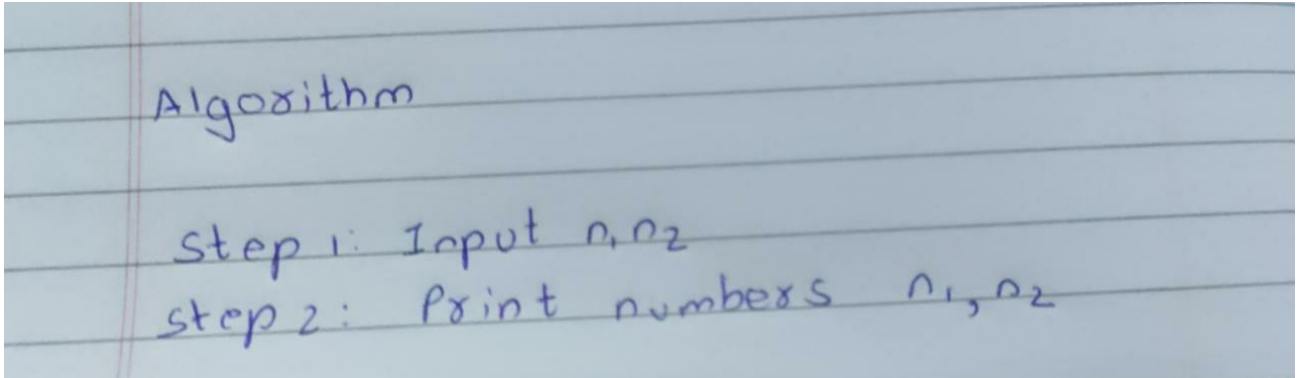 Algorithm
Step 1: Input n1 n2
Step 2: Print numbers n1, n2